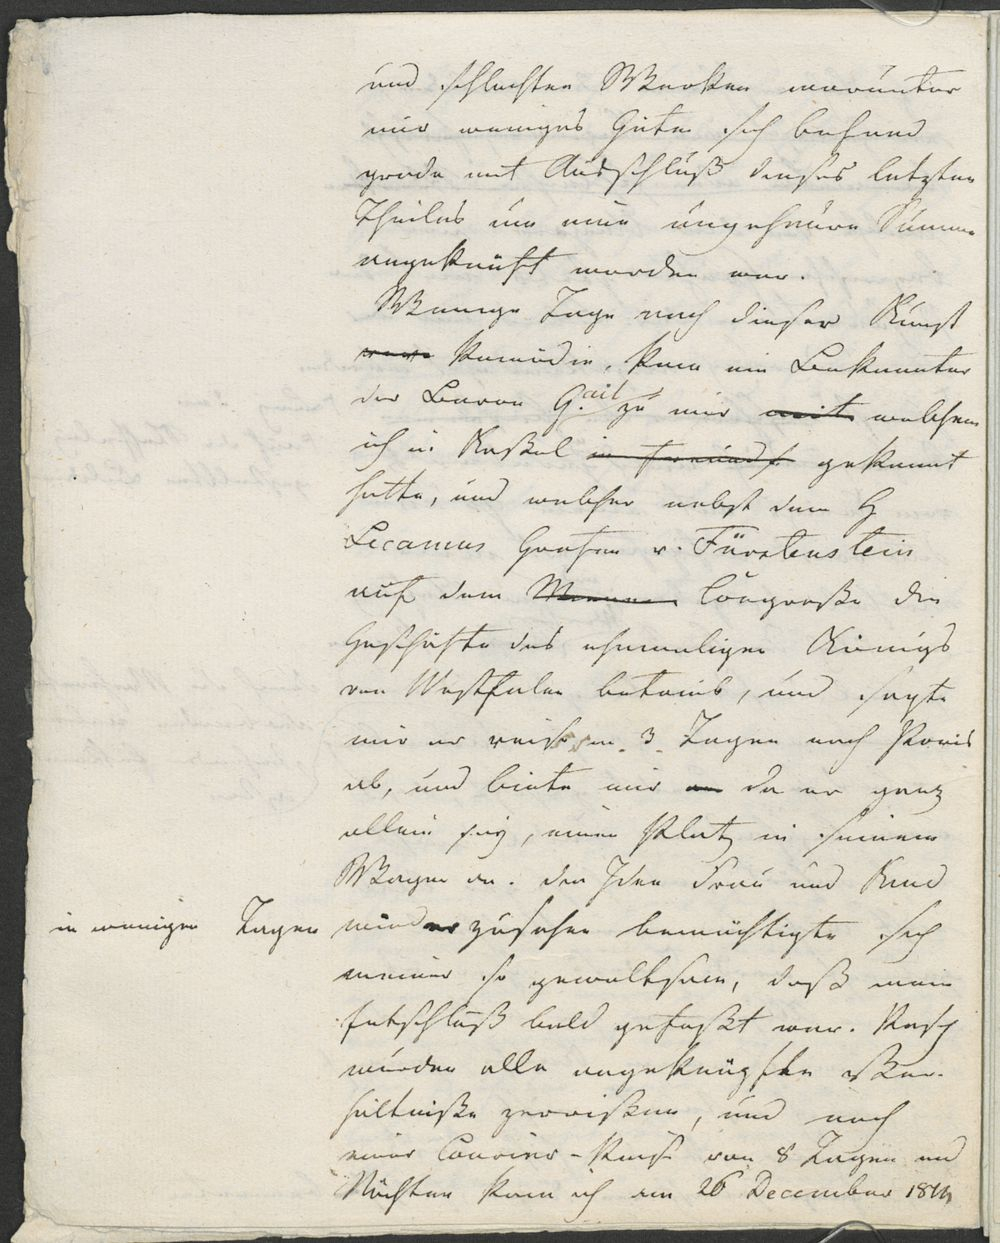 und schlechten Werken worunter
nur weniges Gute sich befand
grade mit Ausschluß dieses letzten
Theiles um eine ungeheure Summe
angekauft worden war.
Wenige Tage nach dieser Kunst
Komödie, kam ein Bekannter
der Baron Gail zu mir mit welchem
ich in Kaßel gekannt
hatte, und welcher nebst dem H
Lecamus Grafen v. Fürstenstein
auf dem Congreße die
Geschäfte des ehmaligen Königs
von Westfalen betrieb, und sagte
mir er reise in 3 Tagen nach Paris
ab, und biete mir da er ganz
allein sey, einen Platz in seinem
Wagen an. die Idee Frau und Kind
in wenigen Tagen wiederzusehen bemächtigte sich
meiner so gewaltsam, daß mein
Entschluß bald gefaßt war. Rasch
wurden alle angeknüpften Ver-
hältniße zerrißen, und nach
einer Courier-Reise von 8 Tagen und
Nächten kam ich am 26 December 1814